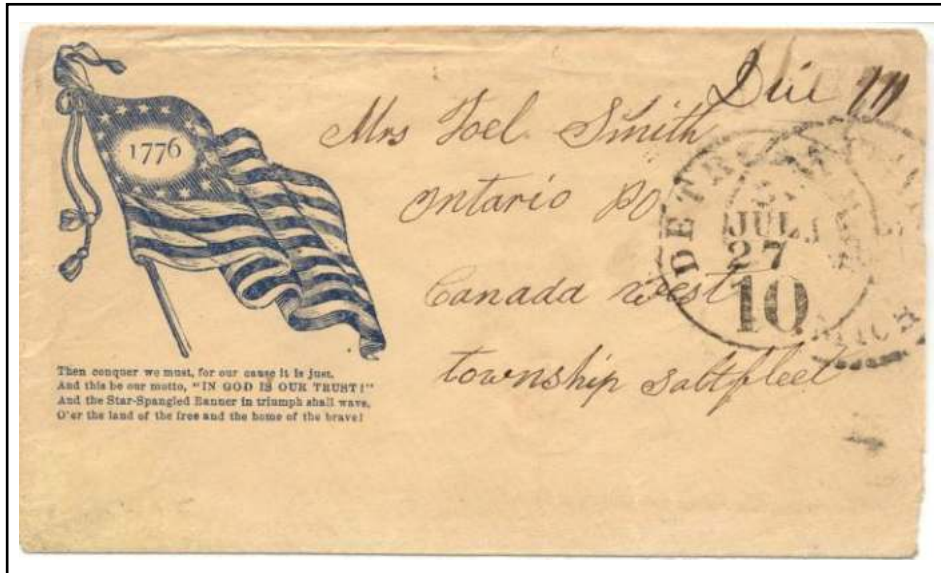 1776
Then conquer we must, for our cause it is just,
And this be our motto, "IN GOD IS OUR TRUST!"
And the Star-Spangled Banner in triumph shall wave,
O'er the land of the free and the home of the brave!
Due
Mrs Joel Smith
Ontario PO
Canada west
township saltfleet
DETR
JUL
27
10
MICH